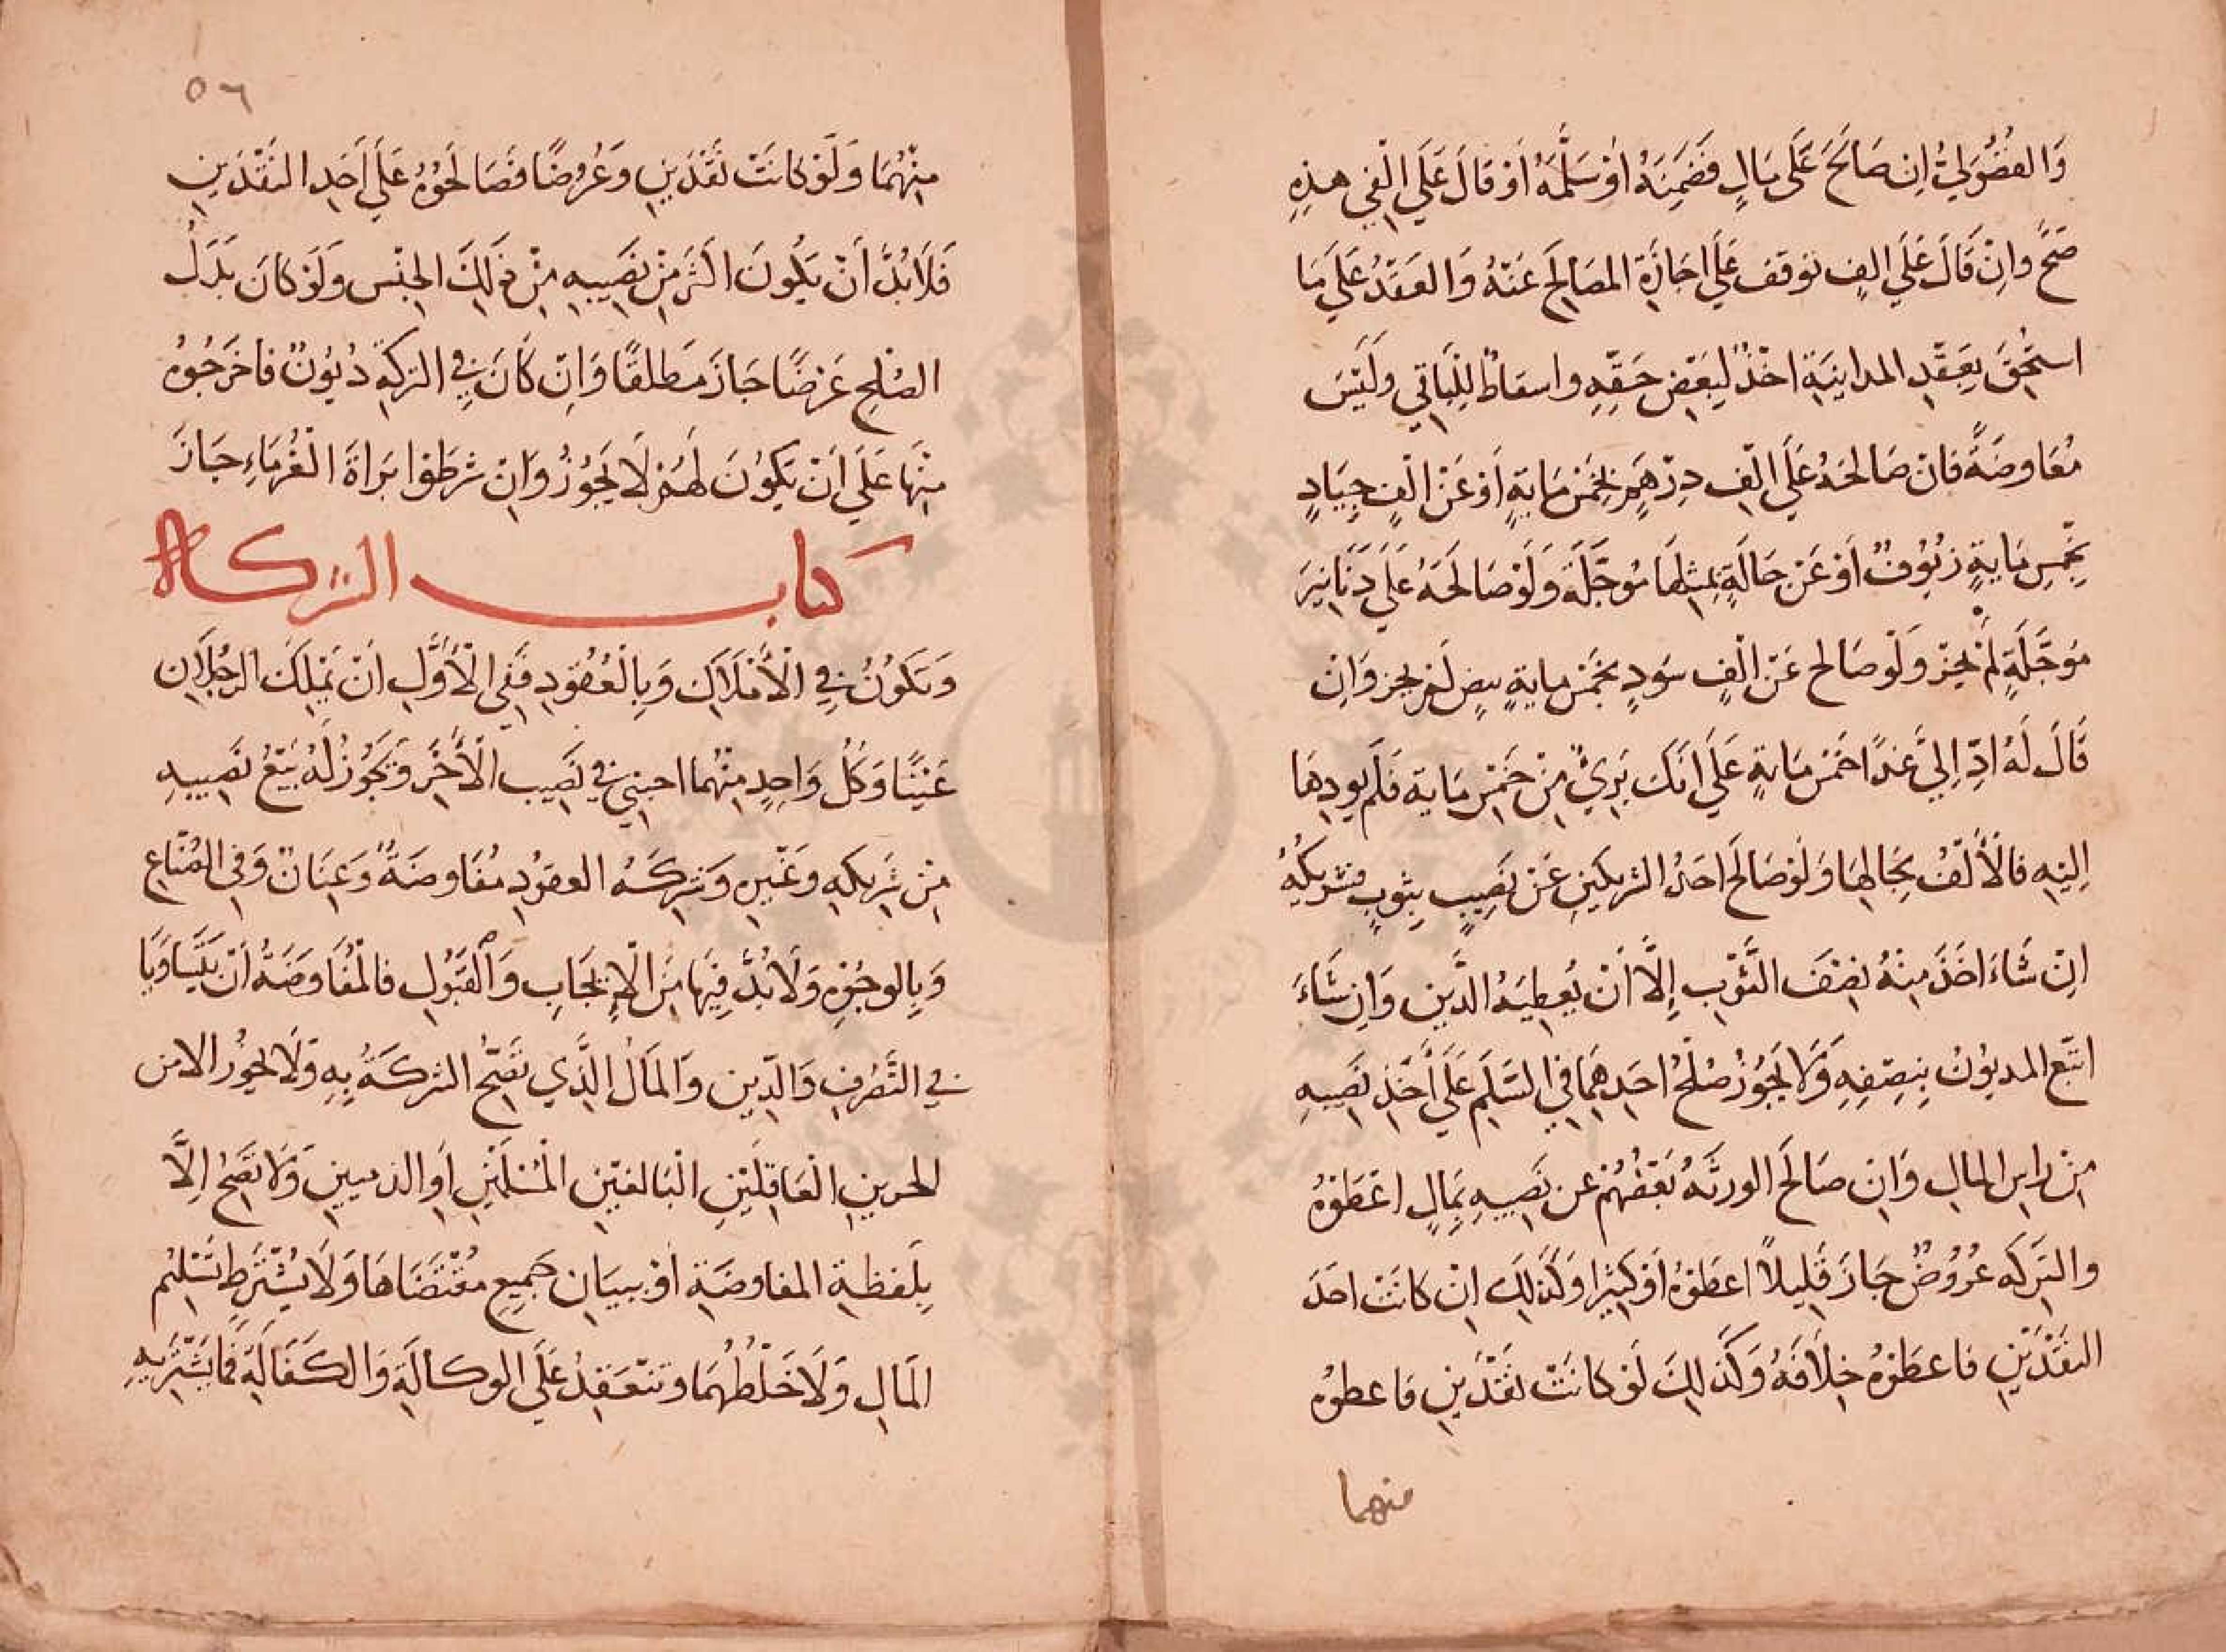 وَالفُضُولِيُّ اِن صَالَحَ عَلَى مَالٍ فَضَمِنَهُ اَوْ سَلَّمَهُ اَوْ قَالَ عَلَي اَلْفِي هذِهِ
صَحَّ وَاِنْ قَالَ عَلَي الفٍ توقف عَلَي اجَازَةِ المصَالَحِ عَنْهُ وَالعَقْدُ عَلَي مَا
استُحِقَّ بِعَقْدِ المداينَةِ اخْذٌ لِبَعْضِ حَقِّهِ واسقاطٌ لِلْبَاقِي وَلَيْسَ
مُعَاوضَةً فان صَالحَهُ عَلَي اَلْفِ دِرْهَمٍ بِخَمْسِ مَايةٍ اَوْ عَنْ الْفٍ جِيَادٍ
بِخَمْسِ مَايةٍ زُيُوْفٌ اَوْ عَنْ حَالَةٍ بمِثلِهَا مُوجَّلَة وَلَوْ صَالَحَهُ عَلَي دَنَانِيرَ
مُوَجَّلَةٍ لَمْ يَجُزْ وَلَوْ صَالح عَنْ اَلْفٍ سُودٍ بخَمْسِ مايةٍ بيضٍ لَمْ يجز وَاِنْ
قَالَ لَهُ ادِّ اِلَيَّ غدًا خمْسَ مَايةٍ عَلَي انَكَ بَرِيٌ مِنْ خَمْسِ مَايةٍ فَلَم يودِهَا
اِليْهِ فالْأَلْفُ بِحَالِهَا وَلَوْ صَالَحَ احَدُ الشريكَينِ عَنْ نَصِيبٍ بِثوبٍ فشريكُهُ
اِنْ شَاءَ اخَذَ مِنْهُ نِصْفَ الثَّوْبِ إِلَّا اَنْ يُعطِيَهُ الدَّيْنِ وَاِن شَاءَ
اتبَع المديُونَ بِنِصفِهِ وَلَا يَجُوزُ صُلْحُ احَدِهِمَا في السَلَمِ عَلَي أَخْذِ نَصِيبِهِ
مِنْ راسِ المالِ وَاِن صَالَحَ الورثَةُ بَعْضُهُمْ عن نَصِيبِهِ بِمَالٍ اعْطَوْهُ
والتَرِكَه عُرُوضٌ جَازَ قَلِيلاً اعطَوْهُ اَوْ كثِيرا وَكَذَلِكَ اِنْ كانَتْ احَدَ
النقْدَيْنِ فاعطَوْهُ خِلَافَهُ وَكَذَلِكَ لَوْ كانَتْ نَقْدَيْنِ فاعطوْهُ
منهما
٥٦
مِنْهُمَا وَلَوْ كانَتْ نَقْدَيْنِ وَعُرُوضًا فَصَالَحُوْهُ عَلَي اَحَدِ النَقْدَيْنِ
فَلَابُدَّ أَنْ يَكُونَ اكْثَرَ مِنْ نَصِيبِهِ مِنْ ذَلِكَ الجِنْسِ وَلَوْ كانَ بَدَلُ
الصُلحِ عَرْضًا جَازَ مُطلقًا وَاِنْ كَانَ فِي التركةِ دُيُوْنٌ فاخْرَجُوْهُ
مِنْهَا عَلَي اَنْ يَكُونَ لَهُمْ لَا يَجُوْزُ وَاِنْ شَرَطُوا بَراةَ الْغُرَمَاءِ جَازَ
كتاب الشركة
وَتكُوْنُ فِي الْأَمْلَاكِ وَبِالْعُقُودِ فَفِي الْأَوَّلِ اَنْ يَمْلِكَ الرجُلَانِ
عَيْنًا وَكلُ وَاحِدٍ مِنْهُمَا اجنبي فِي نَصِيب الْأَخَر وَيَجُوزُ لَهُ بَيْعُ نَصِيبِهِ
مِنْ شَرِيكِهِ وَغَيْرِهِ وَشِركَةُ العقودِ مُفَاوضَةٌ وَعِنَانٌ وَفي الصُنَاعِ
وَبِالوجُوْهِ وَلَا بُدَّ فِيَها مِنَ الْإِيجَابِ وَالْقَبُولِ فالْمُفَاوَضَةُ اَنْ يَتَسَاوَيَا
فِي التَصَرُفِ وَالدِّينِ وَالمَالُ الَّذِي تَصِحُّ الشركَةُ بِهِ وَلَا يجوزُ الا من
الحرينِ الْعَاقِلَيْنِ الْبَالغَيْنِ الْمُسْلِمَيْنِ اَوِ الذميينِ وَلَا تَصِحُ اِلَّا
بِلَفظةِ المفاوضَةِ اَوْ ببيَانِ جَمِيعِ مُقْتَضَاهَا وَلَا يُشْتَرَطُ تَسْلِيْمُ
المَالِ وَلَا خَلْطُهُمَا وَتنعَقِدُ عَلَي الوكالَةِ وَالكَفَالَةِ فمَا يَشْتَرِيهِ